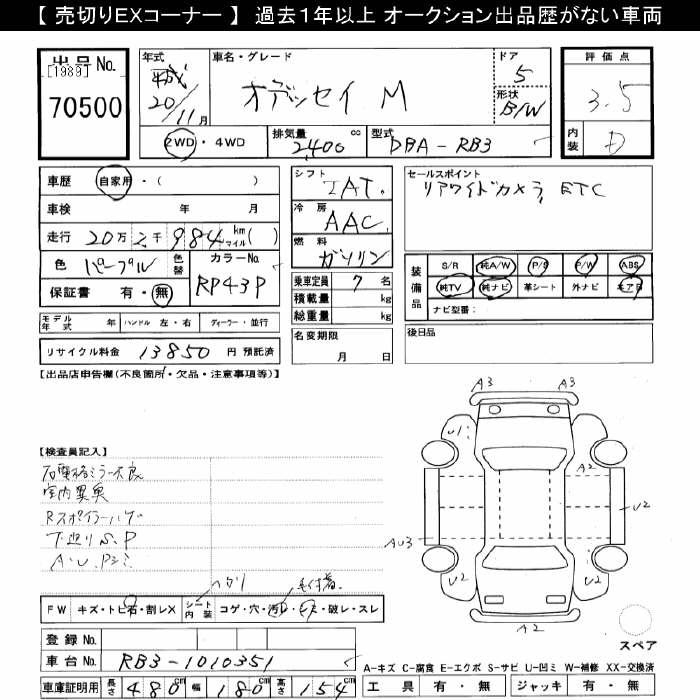 【 売切りEXコーナー 】 過去１年以上 オークション出品歴がない車両
出品 No.
[1989]
70500
年式
平成
20/11月
車名・グレード
オデッセイ M
ドア
5
形状
B/W
評価点
3.5
内装
D
2WD・4WD
排気量
cc
2400
型式
DBA-RB3
車歴 自家用・( )
車検 年 月
走行 20万2千984 km マイル( )
色 パープル
色替
カラーNo.
RP43P
保証書 有・無
シフト
IAT.
冷房
AAC
燃料
ガソリン
乗車定員 7 名
積載量 kg
総重量 kg
セールスポイント
リアワイドカメラ ETC
装備品
S/R 純A/W P/S P/W ABS
純TV 純ナビ 革シート 外ナビ エアB
ナビ型番：
モデル年式 年 ハンドル 左・右 ディーラー・並行
リサイクル料金 13850 円 預託済
名変期限
月 日
後日品
【出品店申告欄(不良箇所・欠品・注意事項等)】
【検査員記入】
石電格ミラー不良
室内異臭
Rスポイラーハゲ
下廻りS.P
A.U.Pシミ
ヘタリ
毛付着
FW キズ・トビ石・割レX
シート内装
コゲ・穴・汚レ・キズ・破レ・スレ
登録 No.
車台 No. RB3-1010351
車庫証明用 長さ 480 cm 幅 180 cm 高さ 154 cm
A3 A3
U1
A2
U2
AU3
U2
U2
A2
スペア
A-キズ C-腐食 E-エクボ S-サビ U-凹ミ W-補修 XX-交換済
工具 有・無 ジャッキ 有・無